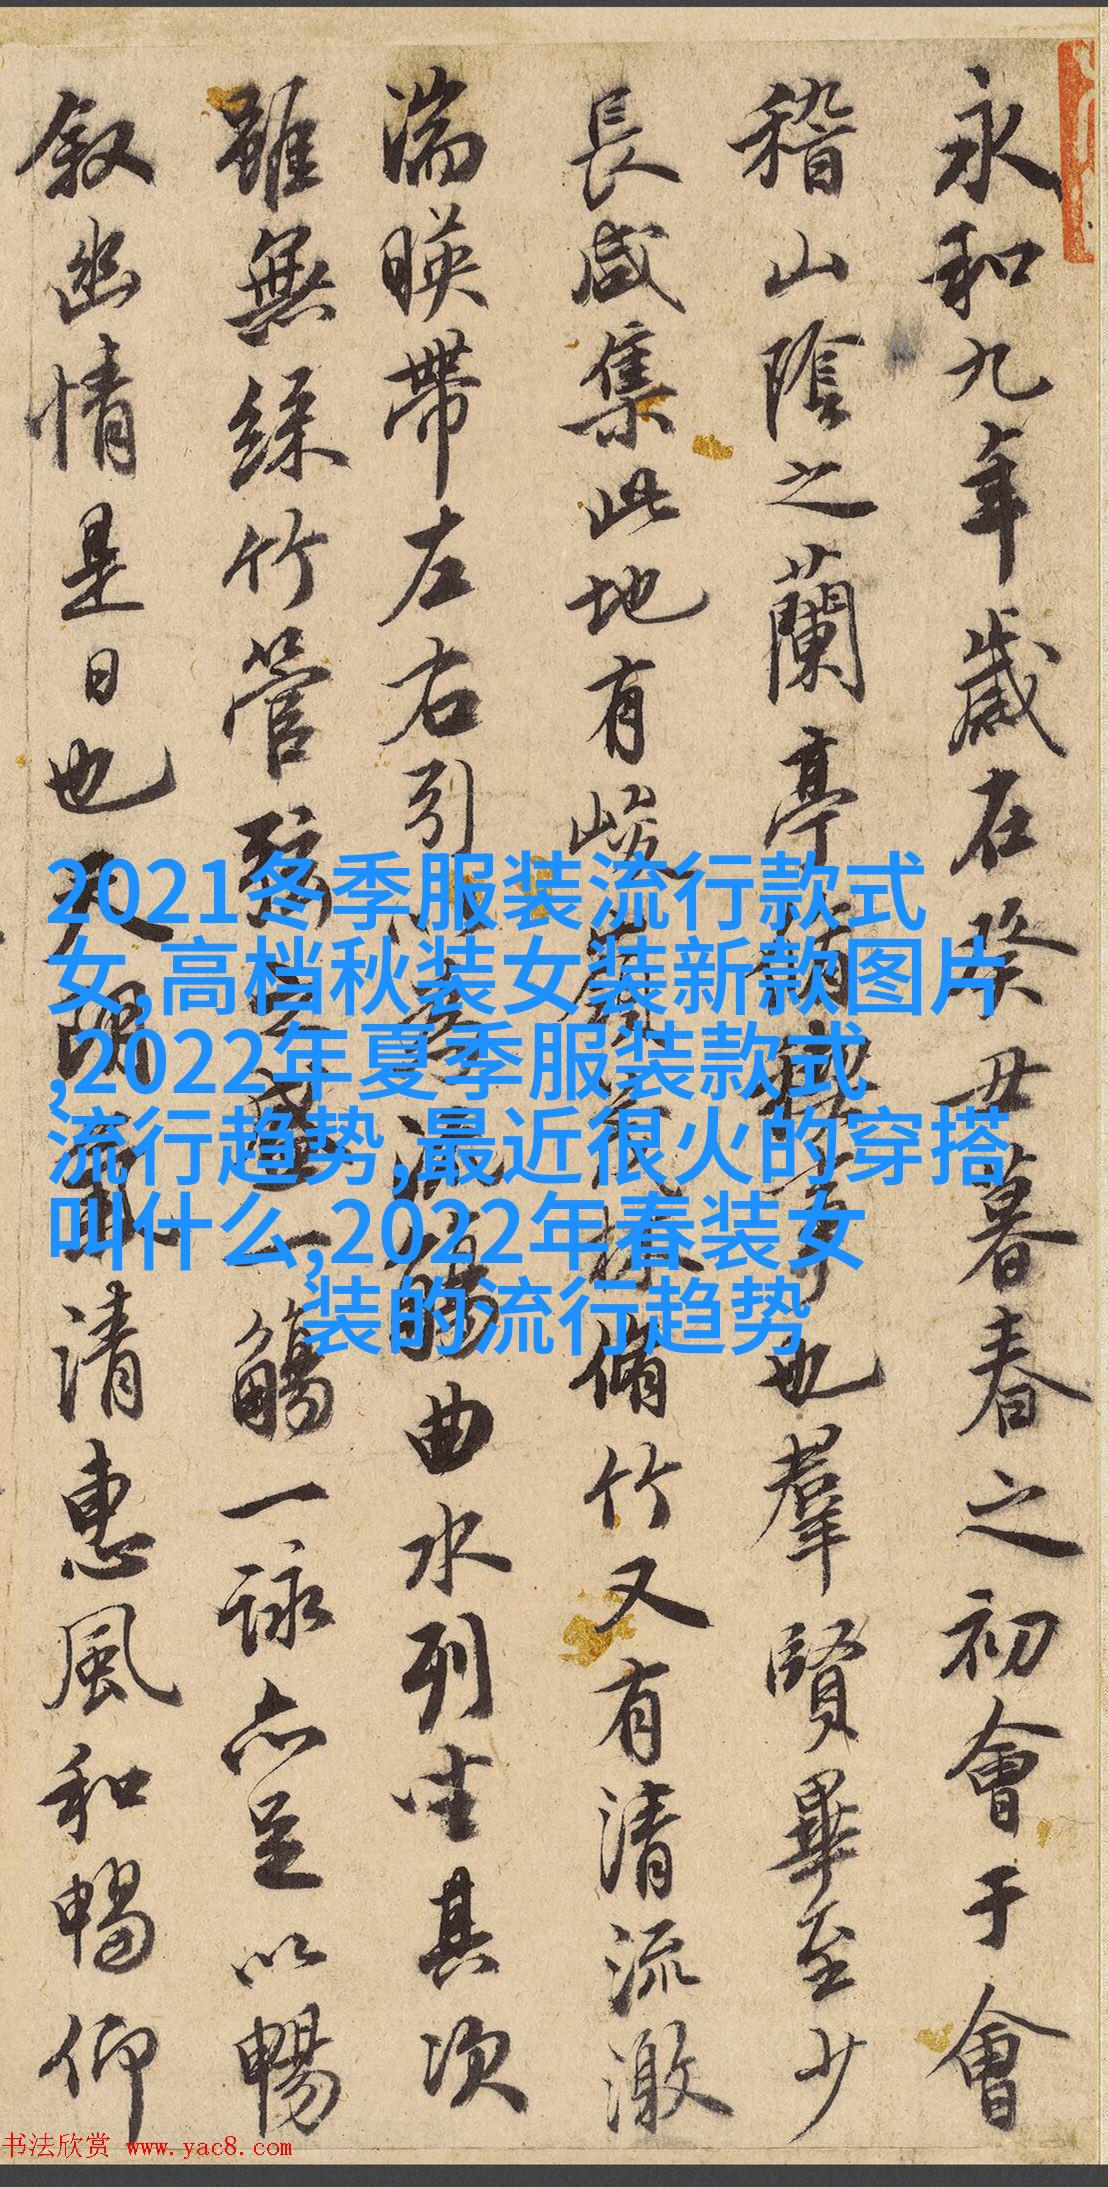 永和九年歲在癸丑暮春之初會于會
稽山陰之蘭亭脩禊事也羣賢畢至少
長咸集此地有峻嶺茂林脩竹又有清流激
湍暎帶左右引以為流觴曲水列坐其次
雖無絲竹管弦之盛一觴一詠亦足以暢
叙幽情是日也天朗氣清惠風和暢仰
2021冬季服装流行款式
女,高档秋装女装新款图片
,2022年夏季服装款式
流行趋势,最近很火的穿搭
叫什么,2022年春装女
装的流行趋势
书法欣赏 www.yac8.com